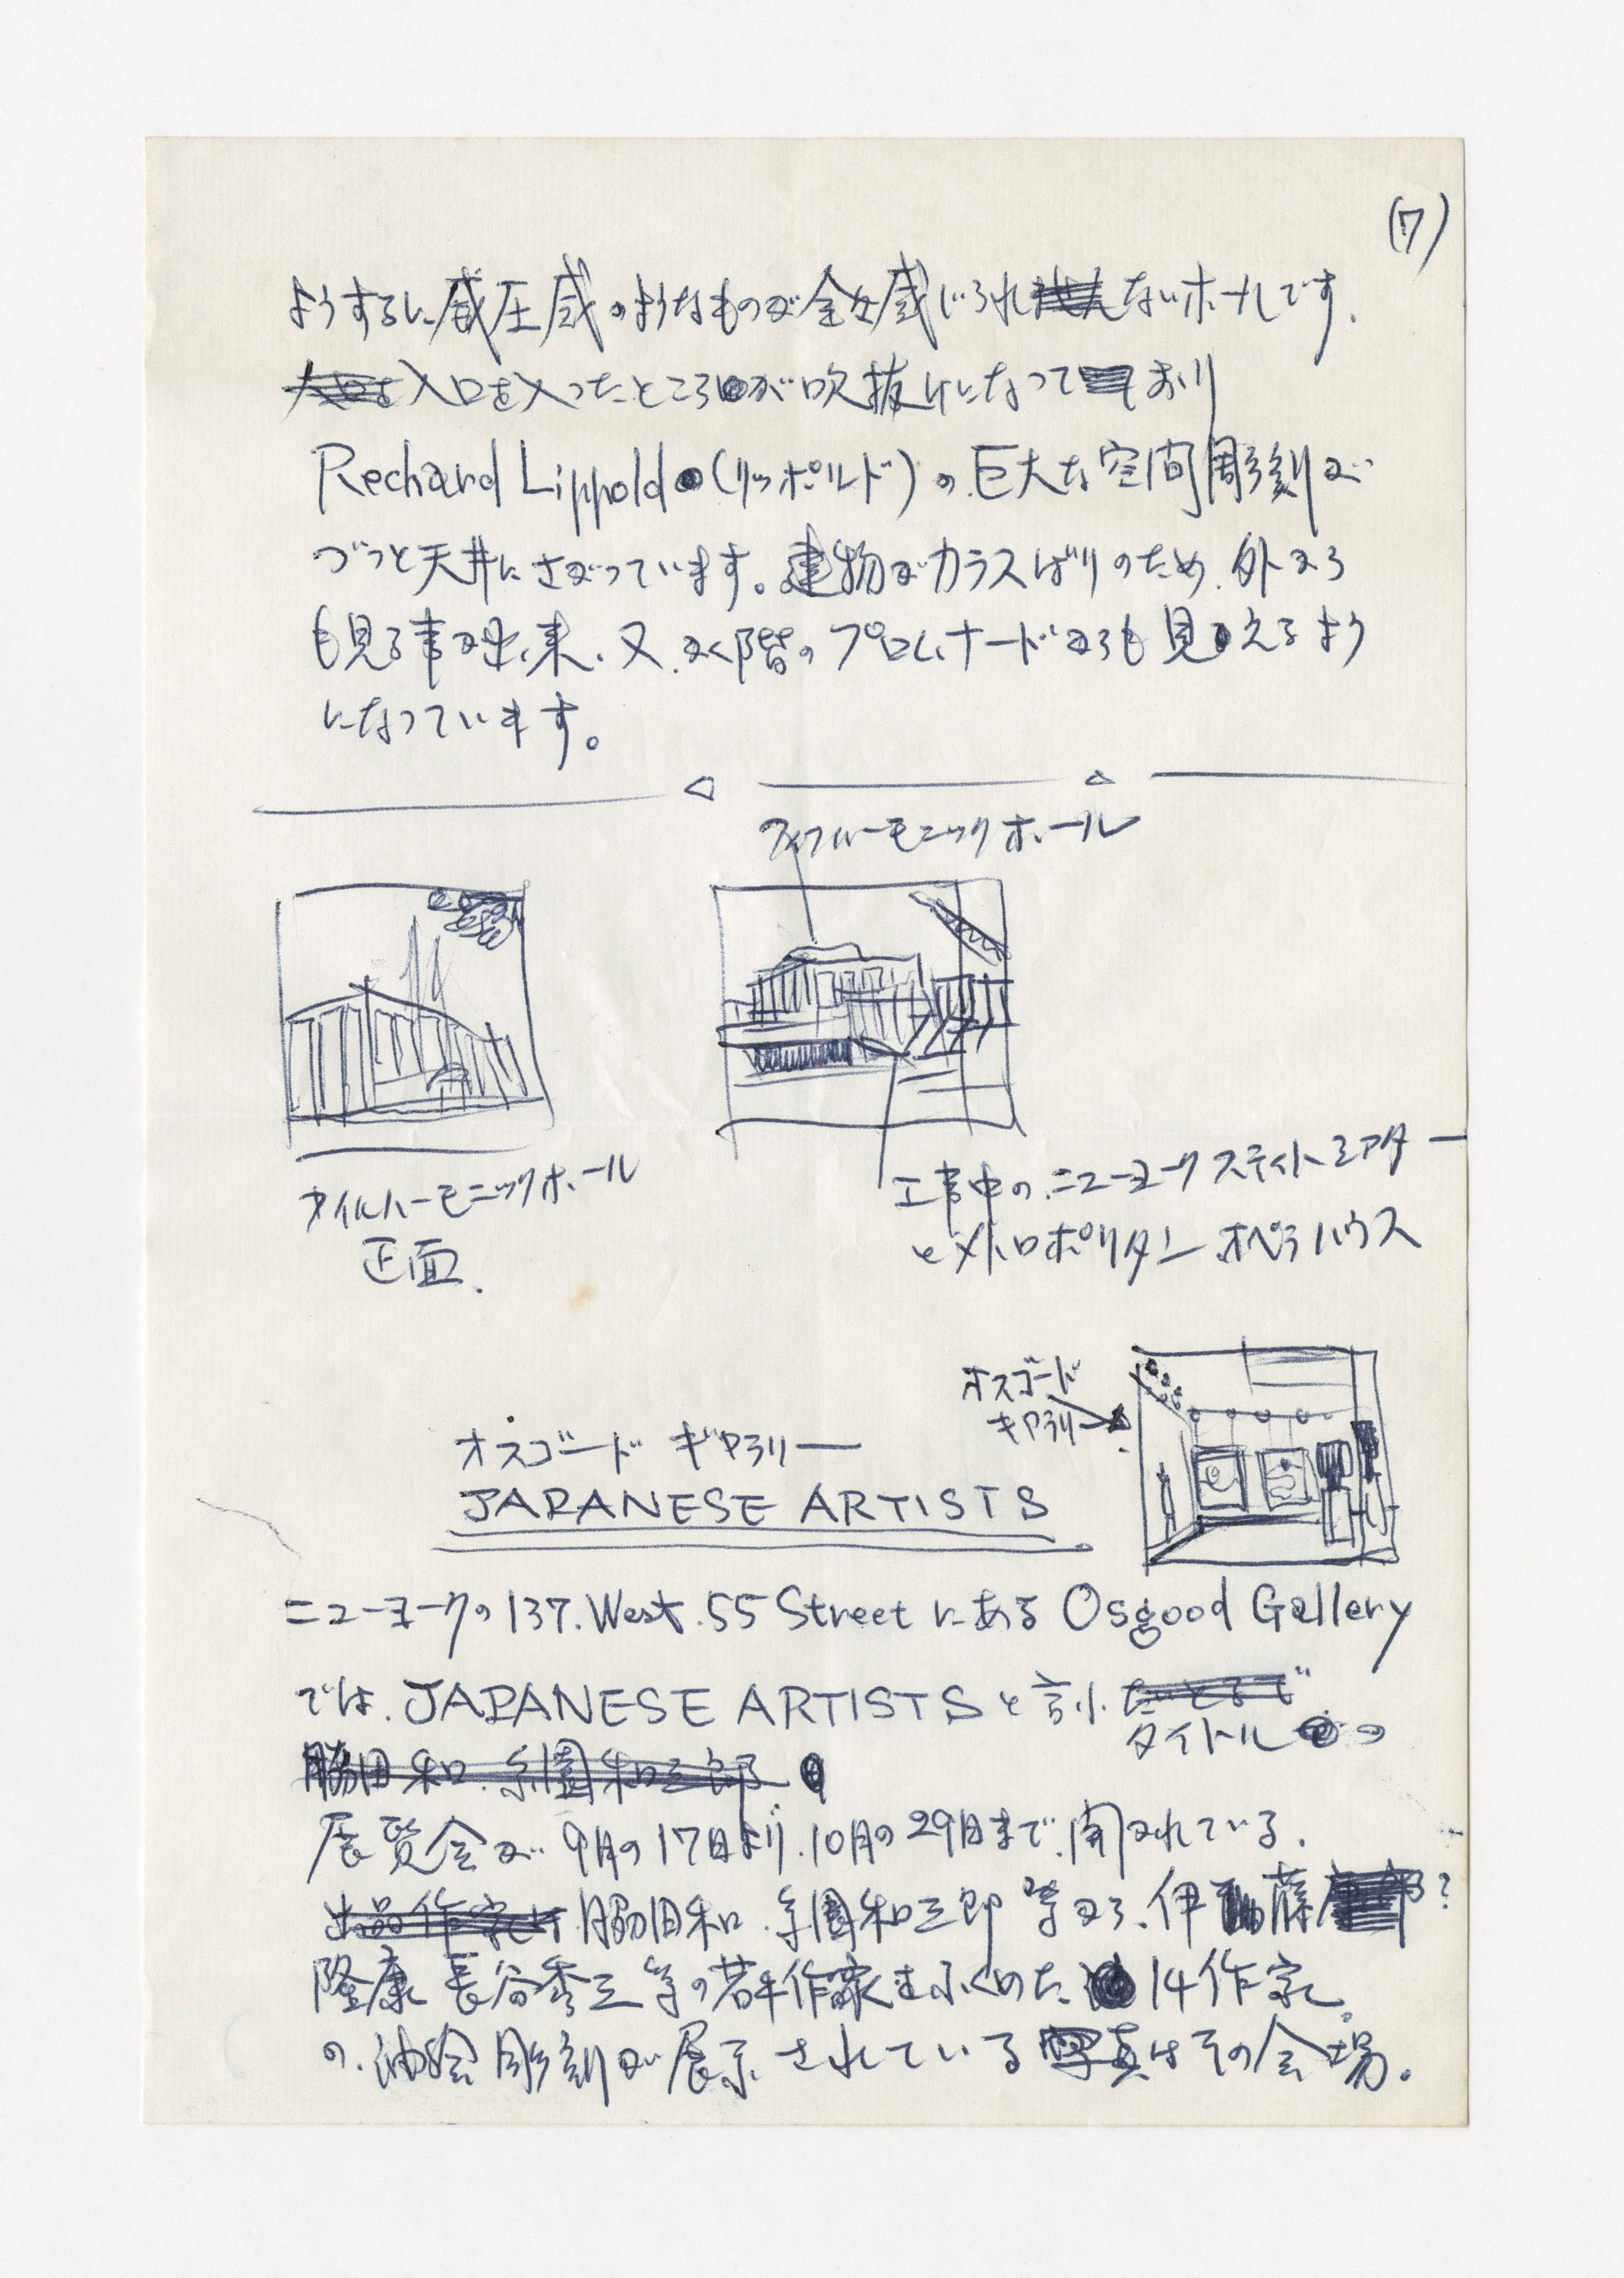 (7)
ようするに威圧感のようなものが全々感じられないホールです.
入口を入ったところが吹抜けになっており
Rechard Lippold (リッポルド) の巨大な空間彫刻が
づっと天井にさがっています。建物がガラスばりのため、外から
も見る事が出来、又、各階のプロムナードからも見えるよう
になっています。
フィルハーモニックホール
フィルハーモニックホール
正面.
工事中のニューヨークステイトシアター
とメトロポリタンオペラハウス
オスゴード
ギャラリー
オスゴード ギャラリー
JAPANESE ARTISTS
ニューヨークの137. West. 55 Street にある Osgood Gallery
では、JAPANESE ARTISTS と言う
タイトルの
脇田和. 糸園和三郎
展覧会が 9月の17日より. 10月の29日まで、開かれている.
出品作家は 脇田和. 糸園和三郎 等から、伊藤 ?
隆康 長谷秀三 等の若手作家をふくめた 14作家
の、油絵彫刻が展示されている 写真はその会場。